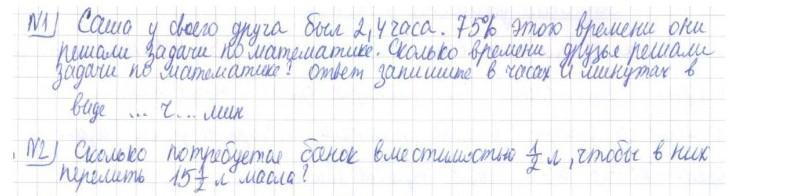 N1) Саша у своего друга был 2,4 часа. 75% этого времени они
решали задачи по математике. Сколько времени друзья решали
задачи по математике? Ответ запишите в часах и минутах в
виде ... ч ... мин
N2) Сколько потребуется банок вместимостью 1/2 л, чтобы в них
перелить 15 1/2 л масла?